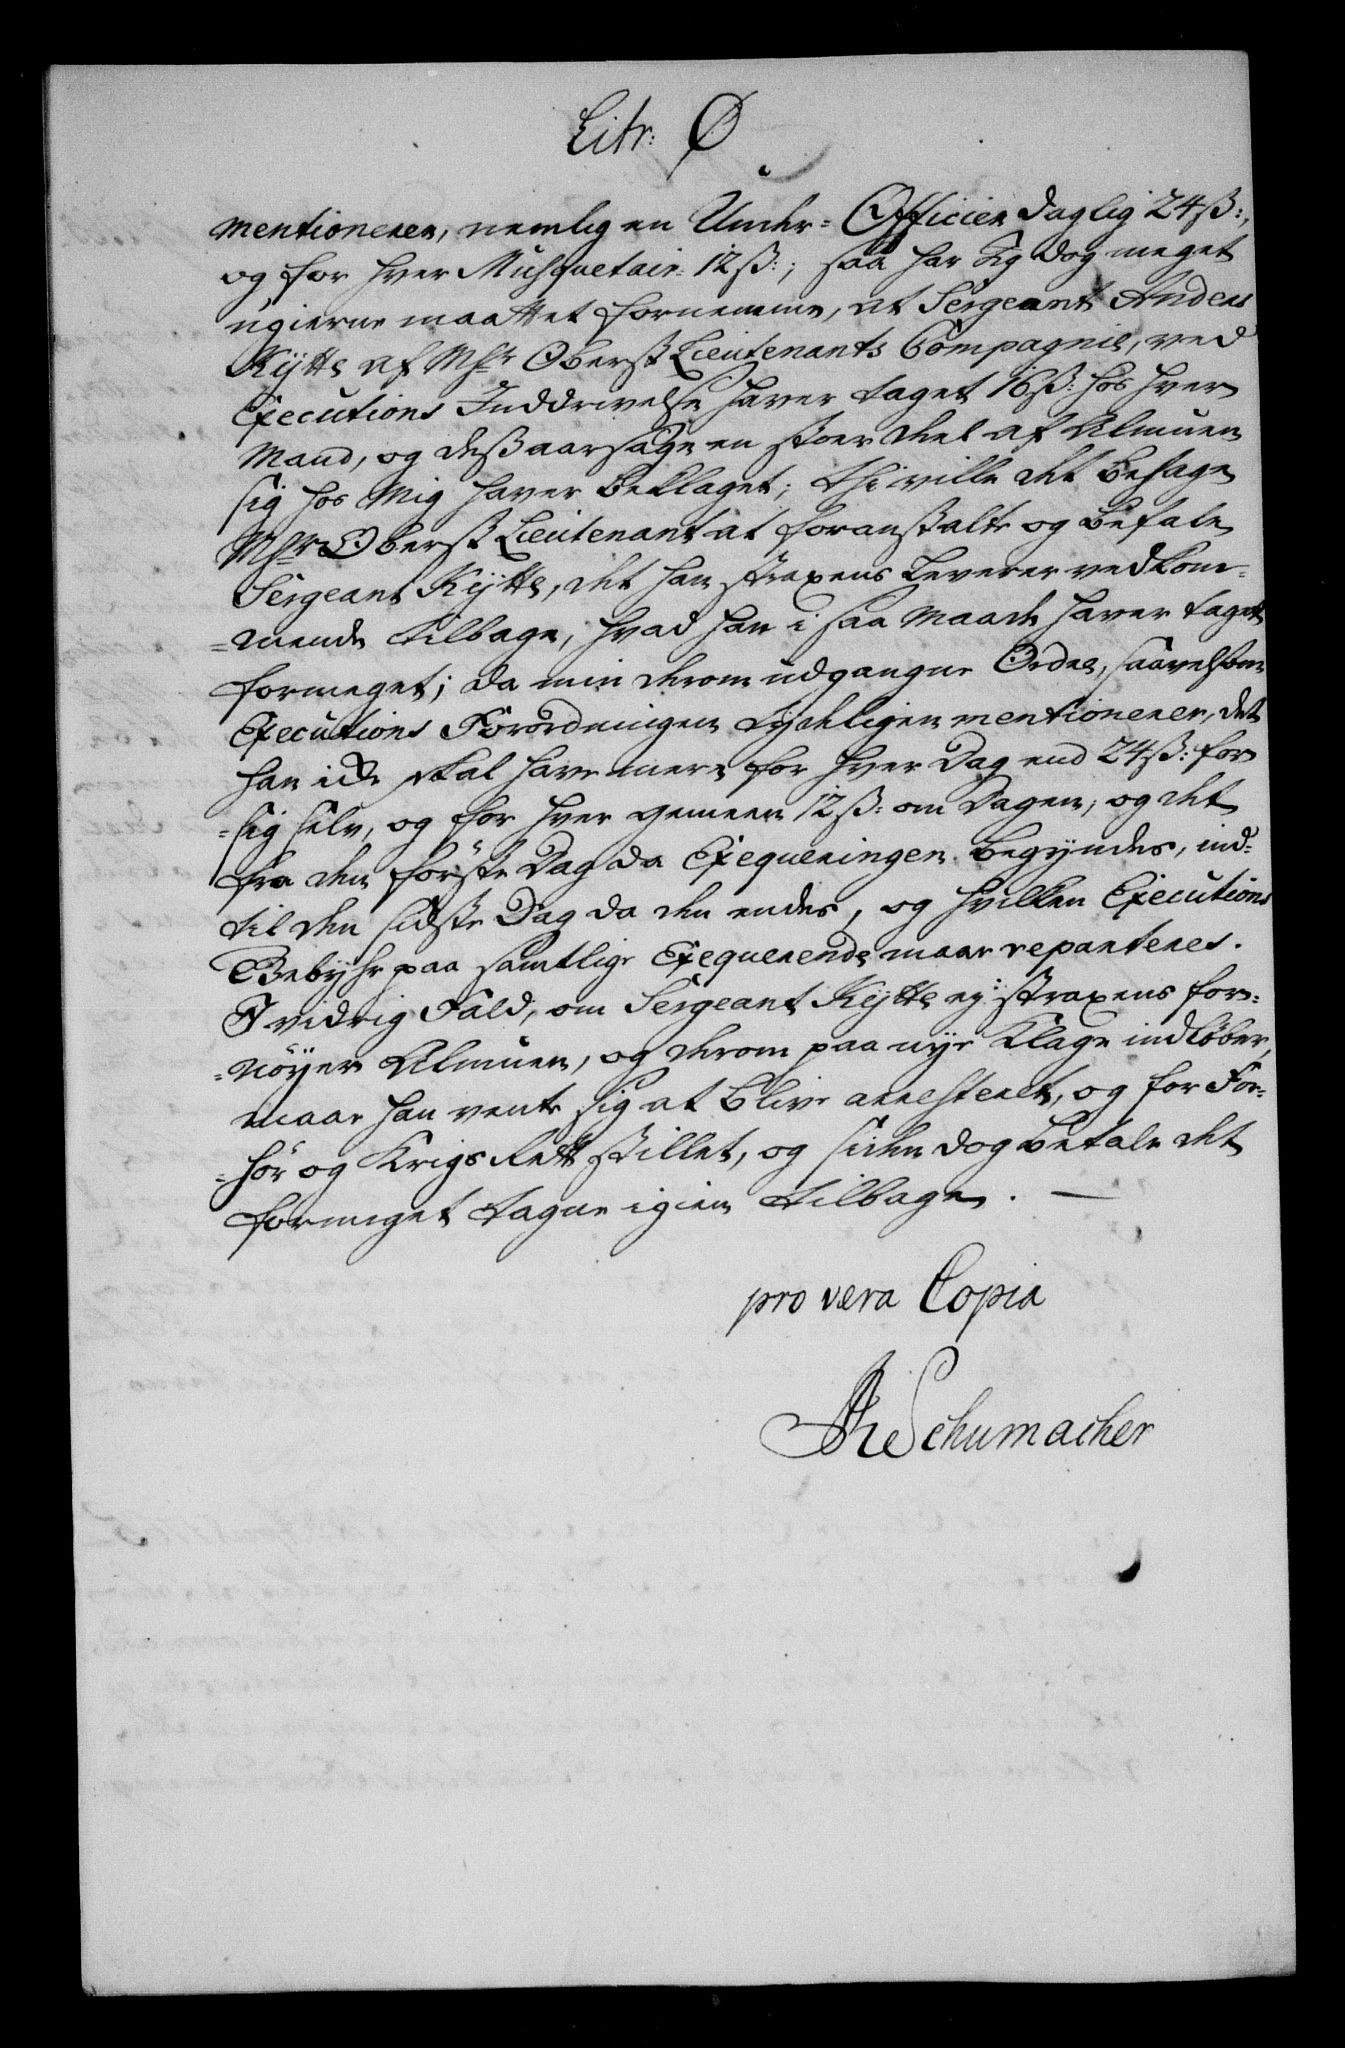 Litr: Ø
mentionerer, nemlig en Under=Officier daglig 24ß:,
og for hver Musquetair: 12ß:; saa har Jeg dog meget
ugierne maattet fornemme, at Sergeant Anders
Kytte af Mhr Oberst Lieutenants Compagnie, ved
Executions Inddrivelse haver taget 16ß: hos hver
Mand, og desaarsage en stoer deel af Almuen
sig hos Mig haver beklaget; thi ville det behage
Mhr Oberst Lieutenant at foranstalte og befale
Sergeant Kytte, det han straxens leverer vedkom=
=mende tilbage, hvad han i saa Maade haver taget
formeget; da min derom udgangne Ordre, saavelsom
Executions Forordningen tydeligen mentionerer, det
han icke skal have mere for hver Dag end 24ß: for
=sig selv, og for hver gemeen 12ß: om Dagen, og det
fra den förste Dag da Exequeringen begyndes, ind=
til den sidste Dag da den endes, og hvilken Executions
Gebyhr paa samtlige Exequerende maae reparteres.
I vidrig Fald, om Sergeant Kytte ey straxens for=
=nöyer Almuen, og derom paa nye Klage indlöber,
maae han vente sig at blive arresteret, og for For=
=hör og Krigs Rett stillet, og siden dog betale det
formeget tagne igien tilbage. —
pro vera Copia
Schumacher